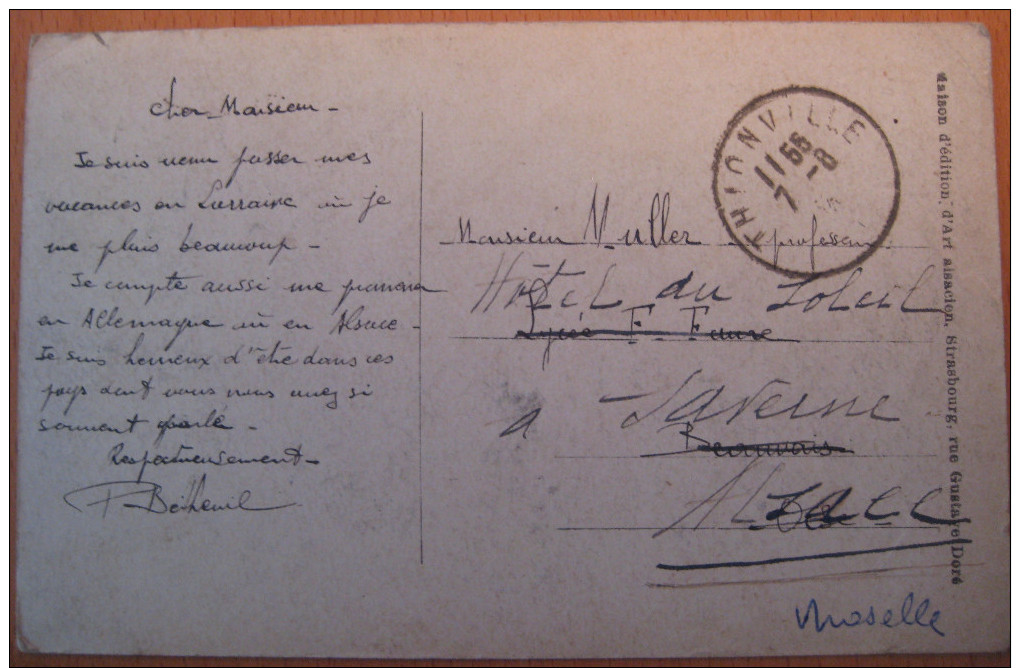 Cher Monsieur -
Je suis venu passer mes
vacances en Lorraine où je
me plais beaucoup -
Je compte aussi me promener
en Allemagne ou en Alsace -
Je suis heureux d'être dans ces
pays dont vous nous avez si
souvent parlé -
Respectueusement -
THIONVILLE
11 55
7 - 8
Monsieur Muller professeur
Hôtel du Soleil
Lycée F. Faure
à Saverne
Beauvais
Alsace
Moselle
Maison d'édition d'Art alsacien, Strasbourg, rue Gustave Doré